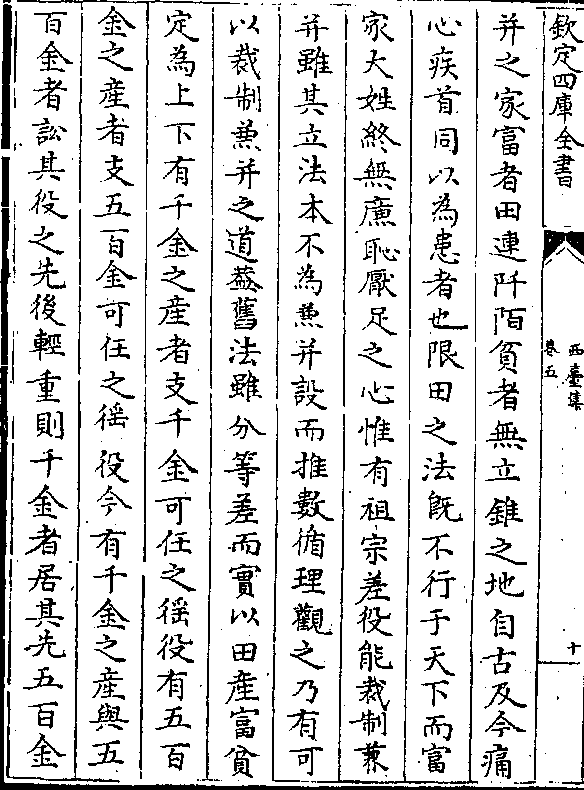 欽定四庫全書
西臺集
卷五
十
并之家富者田連阡陌貧者無立錐之地自古及今痛
心疾首同以為患者也限田之法旣不行于天下而富
家大姓終無廉恥厭足之心惟有祖宗差役能裁制兼
并雖其立法本不為兼并設而推數循理觀之乃有可
以裁制兼并之道蓋舊法雖分等差而實以田產富貧
定為上下有千金之產者支千金可任之徭役有五百
金之產者支五百金可任之徭役今有千金之產與五
百金者訟其役之先後輕重則千金者居其先五百金